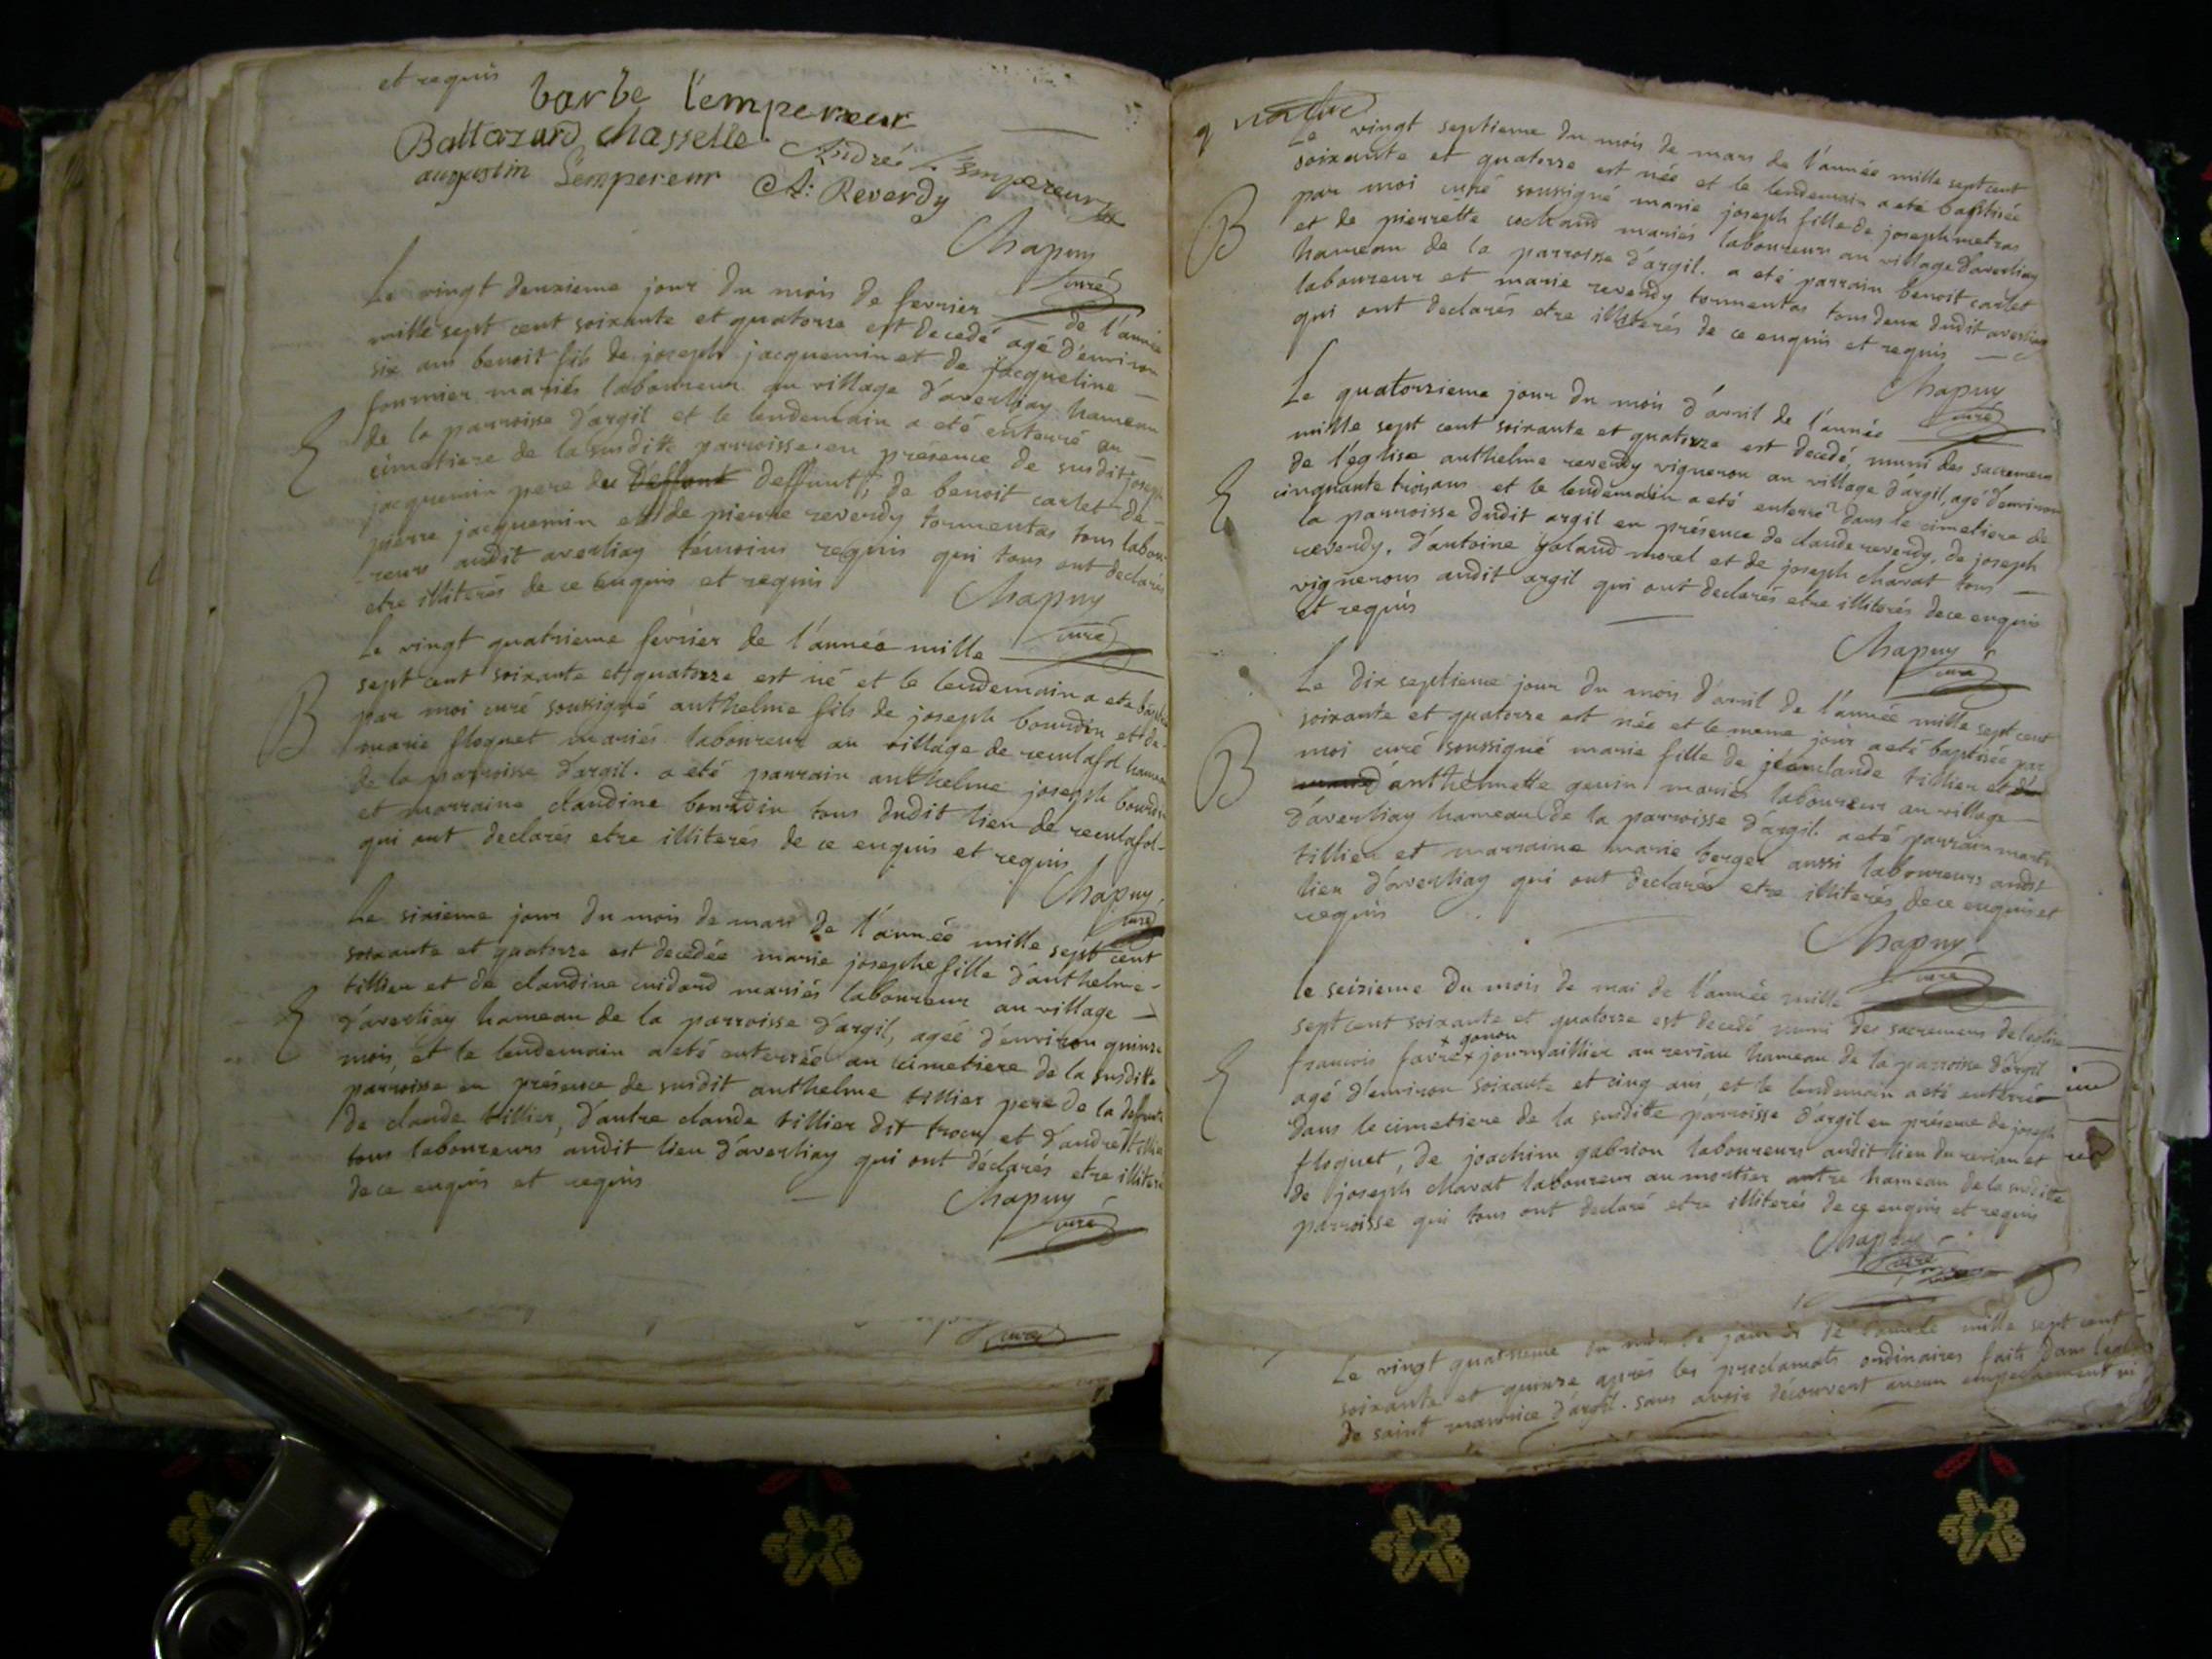 et requis
barbe l'empereur
Baltazard Chasselle André l'Empereur
augustin Lempereur A: Reverdy
Chapuy
curé
Le vingt deuxieme jour du mois de fevrier de l'année
mille sept cent soixante et quatorze est decedé agé d'environ
six ans benoit fils de joseph jacquemin et de jacqueline
fournier mariés laboureur au village d'averliaz hameau
de la parroisse d'argil et le lendemain a eté enterré au
E
cimetiere de la susditte parroisse en présence de susdit joseph
jacquemin pere du deffunt, de benoit carlet de
pierre jacquemin et de pierre reverdy tormentas tous labou-
reurs audit averliay témoins requis qui tous ont declarés
etre illiterés de ce enquis et requis
Chapuy
curé
Le vingt quatrieme fevrier de l'année mille
sept cent soixante et quatorze est né et le lendemain a eté baptisé
B
par moi curé soussigné anthelme fils de joseph bourdin et de
marie floquet mariés laboureur au village de reculafol hameau
de la parroisse d'argil. a eté parrain anthelme joseph bourdin
et marraine claudine bourdin tous dudit lieu de reculafol
qui ont declarés etre illiterés de ce enquis et requis
Chapuy
curé
Le sixieme jour du mois de mars de l'année mille sept cent
soixante et quatorze est decedée marie josephe fille d'anthelme
tillier et de claudine cuidard mariés laboureur au village
E
d'averliay hameau de la parroisse d'argil, ageé d'environ quinze
mois, et le lendemain a eté enterrée au cimetiere de la susditte
parroisse en présence de susdit anthelme tillier pere de la defunte
de claude tillier, d'autre claude tillier dit trocu et d'andré tillier
tous laboureurs audit lieu d'averliay qui ont déclarés etre illiterés
de ce enquis et requis
Chapuy
curé
curé
Le vingt septieme du mois de mars de l'année mille sept cent
soixante et quatorze est née et le lendemain a eté baptisée
par moi curé soussigné marie joseph fille de joseph metras
B
et de pierrette cochand mariés laboureur au village d'averliay
hameau de la parroisse d'argil. a eté parrain benoit carlet
laboureur et marie reverdy tormentas tous deux dudit averliay
qui ont declarés etre illiterés de ce enquis et requis
Chapuy
curé
Le quatorzieme jour du mois d'avril de l'année
mille sept cent soixante et quatorze est decedé, muni des sacremens
de l'eglise anthelme reverdy vigneron au village d'argil, agé d'environ
E
cinquante trois ans et le lendemain a eté enterré dans le cimetiere de
la parroisse dudit argil en présence de claude reverdy, de joseph
reverdy, d'antoine galand morel et de joseph chavat tous
vignerons audit argil qui ont declarés etre illiterés de ce enquis
et requis
Chapuy
curé
Le dix septieme jour du mois d'avril de l'année mille sept cent
soixante et quatorze est née et le meme jour a eté baptisée par
moi curé soussigné marie fille de jean claude tillier et
B
d'anthelmette genin mariés laboureur au village
d'averliay hameau de la parroisse d'argil. a eté parrain
tillier et marraine marie berger aussi laboureurs audit
lieu d'averliay qui ont declarés etre illiterés de ce enquis et
requis
Chapuy
curé
le seizieme du mois de mai de l'année mille
sept cent soixante et quatorze est decedé muni des sacremens de l'eglise
x gonon
francois favre x journaillier au reviau hameau de la parroisse d'argil
E
agé d'environ soixante et cinq ans, et le lendemain a eté enterré
dans le cimetiere de la susditte parroisse d'argil en présence de joseph
floquet, de joachim gabrion laboureurs audit lieu du reviau et
de joseph chavat laboureur au mortier autre hameau de la susditte
parroisse qui tous ont declaré etre illiterés de ce enquis et requis
Chapuy
curé
Le vingt quatrieme du mois de janvier de l'année mille sept cent
soixante et quinze après les proclamats ordinaires faits dans l'eglise
de saint maurice d'argil. sans avoir découvert aucun empechement ni